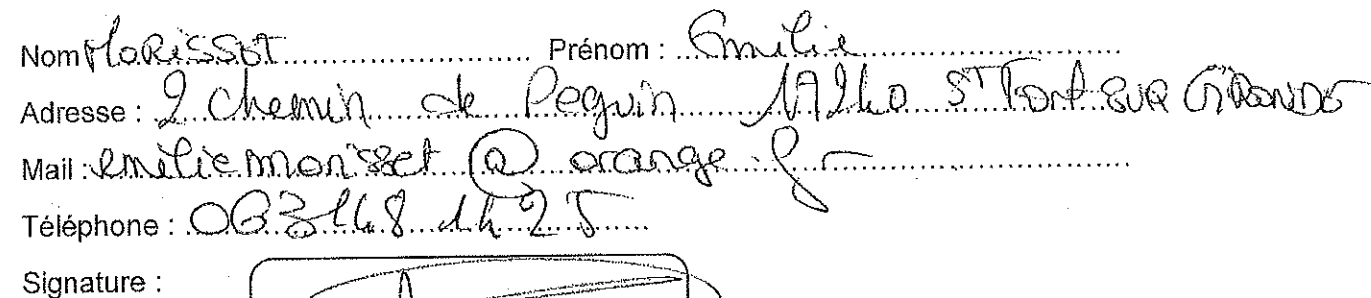 Nom MORISSET Prénom : Emilie
Adresse : 2 Chemin de Peguin 17240 ST Fort SUR GIRONDE
Mail : emiliemorisset @ orange.fr
Téléphone : 06 31 48 14 25
Signature :